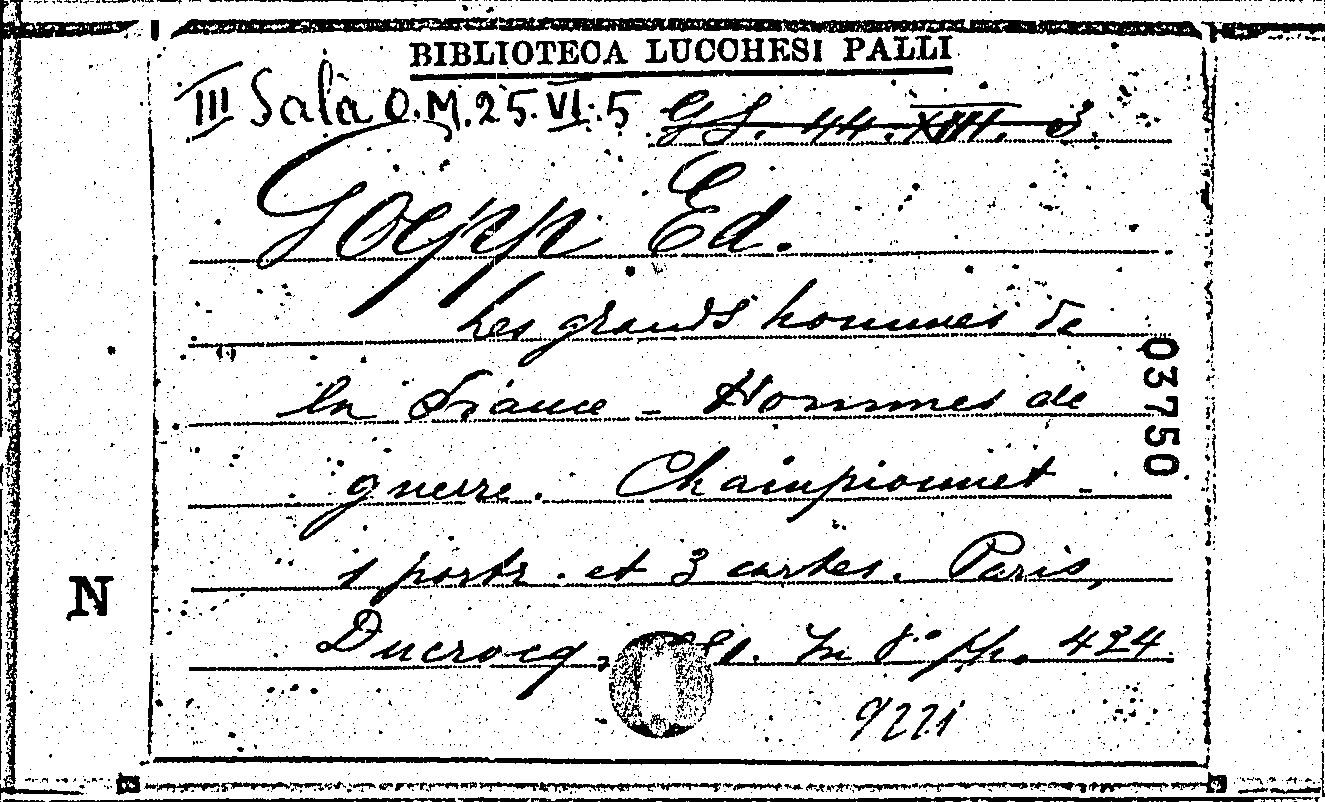 BIBLIOTECA LUCCHESI PALLI
III Sala O.M.25.VI.5 GS. 44. XIII. 3.
Goepp Ed.
Les grands hommes de
la France - Hommes de
guerre. Championnet -
1 portr. et 3 cartes. Paris,
Ducrocq, In 8° pp. 424
9221
03750
N